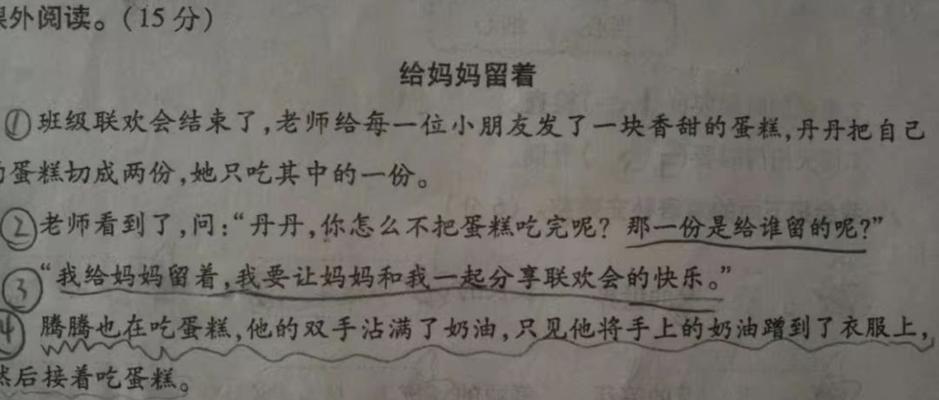 外阅读。(15分)
给妈妈留着
①班级联欢会结束了,老师给每一位小朋友发了一块香甜的蛋糕,丹丹把自己
蛋糕切成两份,她只吃其中的一份。
②老师看到了,问:“丹丹,你怎么不把蛋糕吃完呢?那一份是给谁留的呢?”
③“我给妈妈留着,我要让妈妈和我一起分享联欢会的快乐。”
④腾腾也在吃蛋糕,他的双手沾满了奶油,只见他将手上的奶油蹭到了衣服上,
然后接着吃蛋糕。